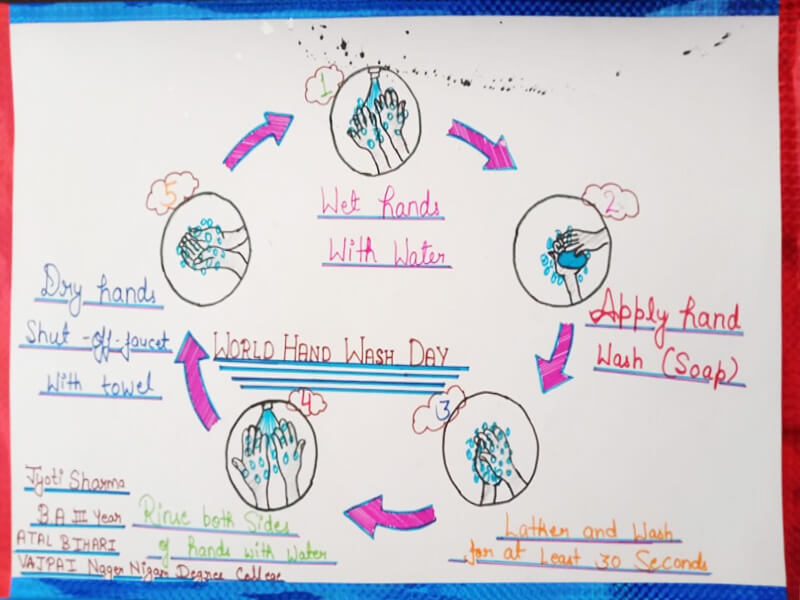 1
Wet hands
With Water
2
Apply hand
Wash (Soap)
3
Lather and Wash
for at Least 30 Seconds
4
Rinse both Sides
of hands with Water
5
Dry hands
Shut-off-faucet
With towel
WORLD HAND WASH DAY
Jyoti Sharma
B.A III Year
ATAL BIHARI
VAJPAI Nager Nigam Degree College